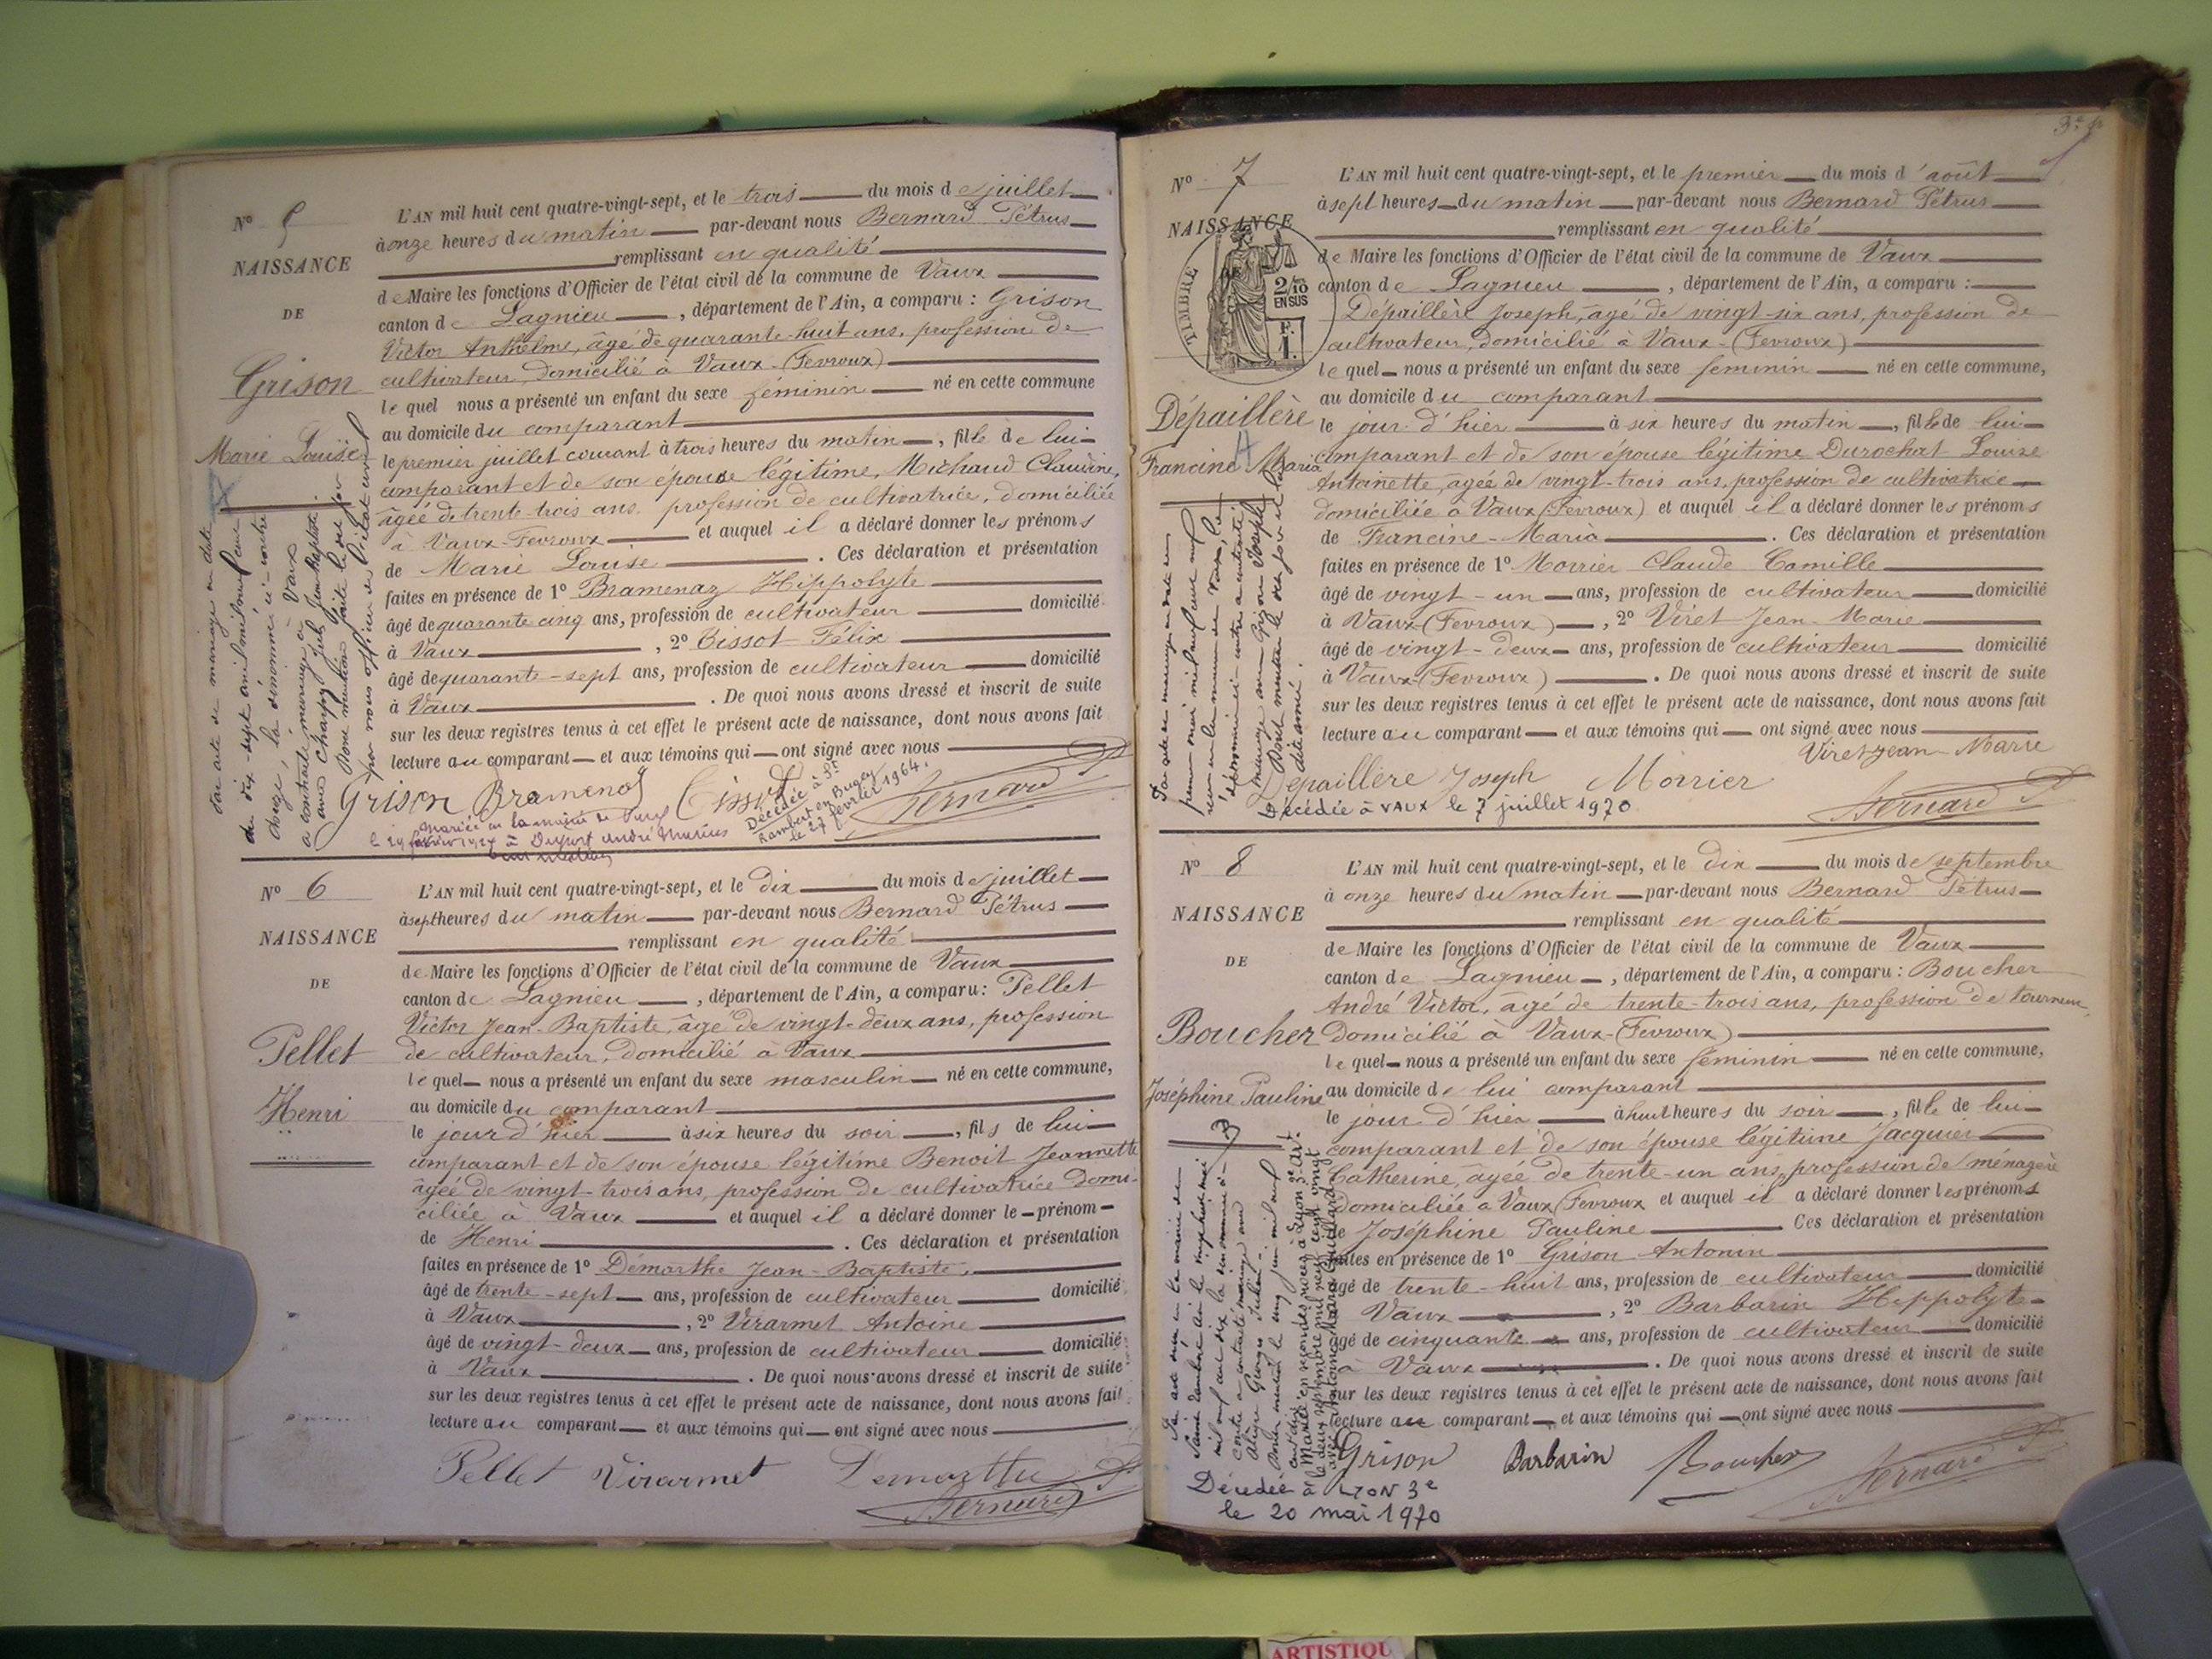 Nº 5
NAISSANCE
DE
Grison
Marie Louise
L'AN mil huit cent quatre-vingt-sept, et le trois du mois de juillet
à onze heures du matin par-devant nous Bernard Pétrus
remplissant en qualité
de Maire les fonctions d'Officier de l'état civil de la commune de Vaux
canton de Lagnieu, département de l'Ain, a comparu : Grison
Victor Anthelme, âgé de quarante-huit ans, profession de
cultivateur, domicilié à Vaux-(Fevroux)
lequel nous a présenté un enfant du sexe féminin né en cette commune
au domicile du comparant
le premier juillet courant à trois heures du matin, fille de lui-
comparant et de son épouse légitime, Michaud Claudine,
âgée de trente-trois ans, profession de cultivatrice, domiciliée
à Vaux-Fevroux et auquel il a déclaré donner les prénoms
de Marie Louise. Ces déclaration et présentation
faites en présence de 1º Bramenaz Hippolyte
âgé de quarante cinq ans, profession de cultivateur domicilié
à Vaux, 2º Cissot Félix
âgé de quarante-sept ans, profession de cultivateur domicilié
à Vaux. De quoi nous avons dressé et inscrit de suite
sur les deux registres tenus à cet effet le présent acte de naissance, dont nous avons fait
lecture au comparant et aux témoins qui ont signé avec nous
Grison Bramenaz Cissot Bernard
Décédée à St
Rambert en Bugey
le 27 février 1964.
Nº 6
NAISSANCE
DE
Pellet
Henri
L'AN mil huit cent quatre-vingt-sept, et le dix du mois de juillet
à sept heures du matin par-devant nous Bernard Pétrus
remplissant en qualité
de Maire les fonctions d'Officier de l'état civil de la commune de Vaux
canton de Lagnieu, département de l'Ain, a comparu : Pellet
Victor Jean-Baptiste, âgé de vingt-deux ans, profession
de cultivateur, domicilié à Vaux
lequel nous a présenté un enfant du sexe masculin né en cette commune,
au domicile du comparant
le jour d'hier à six heures du soir, fils de lui-
comparant et de son épouse légitime Benoit Jeannette
âgée de vingt-trois ans, profession de cultivatrice domi-
ciliée à Vaux et auquel il a déclaré donner le prénom
de Henri. Ces déclaration et présentation
faites en présence de 1º Démarthe Jean-Baptiste,
âgé de trente-sept ans, profession de cultivateur domicilié
à Vaux, 2º Virarmet Antoine
âgé de vingt-deux ans, profession de cultivateur domicilié
à Vaux. De quoi nous avons dressé et inscrit de suite
sur les deux registres tenus à cet effet le présent acte de naissance, dont nous avons fait
lecture au comparant et aux témoins qui ont signé avec nous
Pellet Virarmet Demarthe
Bernard
Nº 7
NAISSANCE
TIMBRE
2/10
EN SUS
F.
1.
Dépaillère
Francine Maria
L'AN mil huit cent quatre-vingt-sept, et le premier du mois d'août
à sept heures du matin par-devant nous Bernard Pétrus
remplissant en qualité
de Maire les fonctions d'Officier de l'état civil de la commune de Vaux
canton de Lagnieu, département de l'Ain, a comparu :
Dépaillère Joseph, âgé de vingt-six ans, profession de
cultivateur, domicilié à Vaux-(Fevroux)
lequel nous a présenté un enfant du sexe féminin né en cette commune,
au domicile du comparant
le jour d'hier à six heures du matin, fille de lui-
comparant et de son épouse légitime Durochat Louise
Antoinette, âgée de vingt-trois ans, profession de cultivatrice
domiciliée à Vaux (Fevroux) et auquel il a déclaré donner les prénoms
de Francine-Maria. Ces déclaration et présentation
faites en présence de 1º Morrier Claude Camille
âgé de vingt-un ans, profession de cultivateur domicilié
à Vaux-(Fevroux), 2º Viret Jean-Marie
âgé de vingt-deux ans, profession de cultivateur domicilié
à Vaux-(Fevroux). De quoi nous avons dressé et inscrit de suite
sur les deux registres tenus à cet effet le présent acte de naissance, dont nous avons fait
lecture au comparant et aux témoins qui ont signé avec nous
Viret Jean-Marie
Depaillère Joseph Morrier
Bernard
Décédée à VAUX le 7 juillet 1970
Nº 8
NAISSANCE
DE
Boucher
Joséphine Pauline
L'AN mil huit cent quatre-vingt-sept, et le dix du mois de septembre
à onze heures du matin par-devant nous Bernard Pétrus
remplissant en qualité
de Maire les fonctions d'Officier de l'état civil de la commune de Vaux
canton de Lagnieu, département de l'Ain, a comparu : Boucher
André Victor, âgé de trente-trois ans, profession de tourneur,
domicilié à Vaux-(Fevroux)
lequel nous a présenté un enfant du sexe féminin né en cette commune,
au domicile de lui comparant
le jour d'hier à huit heures du soir, fille de lui-
comparant et de son épouse légitime Jacquier
Catherine, âgée de trente-un ans, profession de ménagère
domiciliée à Vaux (Fevroux) et auquel il a déclaré donner les prénoms
de Joséphine Pauline Ces déclaration et présentation
faites en présence de 1º Grison Antonin
âgé de trente-huit ans, profession de cultivateur domicilié
Vaux, 2º Barbarin Hippolyte
âgé de cinquante ans, profession de cultivateur domicilié
à Vaux. De quoi nous avons dressé et inscrit de suite
sur les deux registres tenus à cet effet le présent acte de naissance, dont nous avons fait
lecture au comparant et aux témoins qui ont signé avec nous
Grison Barbarin Boucher Bernard
Décédée à LYON 3e
le 20 mai 1970
ARTISTIQU